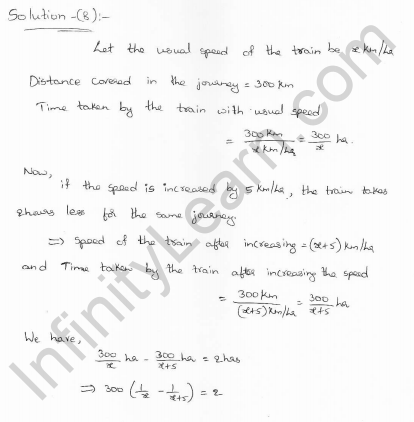 Solution-(8):-
Let the usual speed of the train be x km/hr
Distance covered in the journey = 300 km
Time taken by the train with usual speed
= 300 km / x km/hr = 300/x hr.
Now,
if the speed is increased by 5 km/hr, the train takes
2hours less for the same journey.
⇒ Speed of the train after increasing = (x+5) km/hr
and Time taken by the train after increasing the speed
= 300 km / (x+5) km/hr = 300/x+5 hr
We have,
300/x hr - 300/x+5 hr = 2 hrs
⇒ 300 (1/x - 1/x+5) = 2
InfinityLearn.com